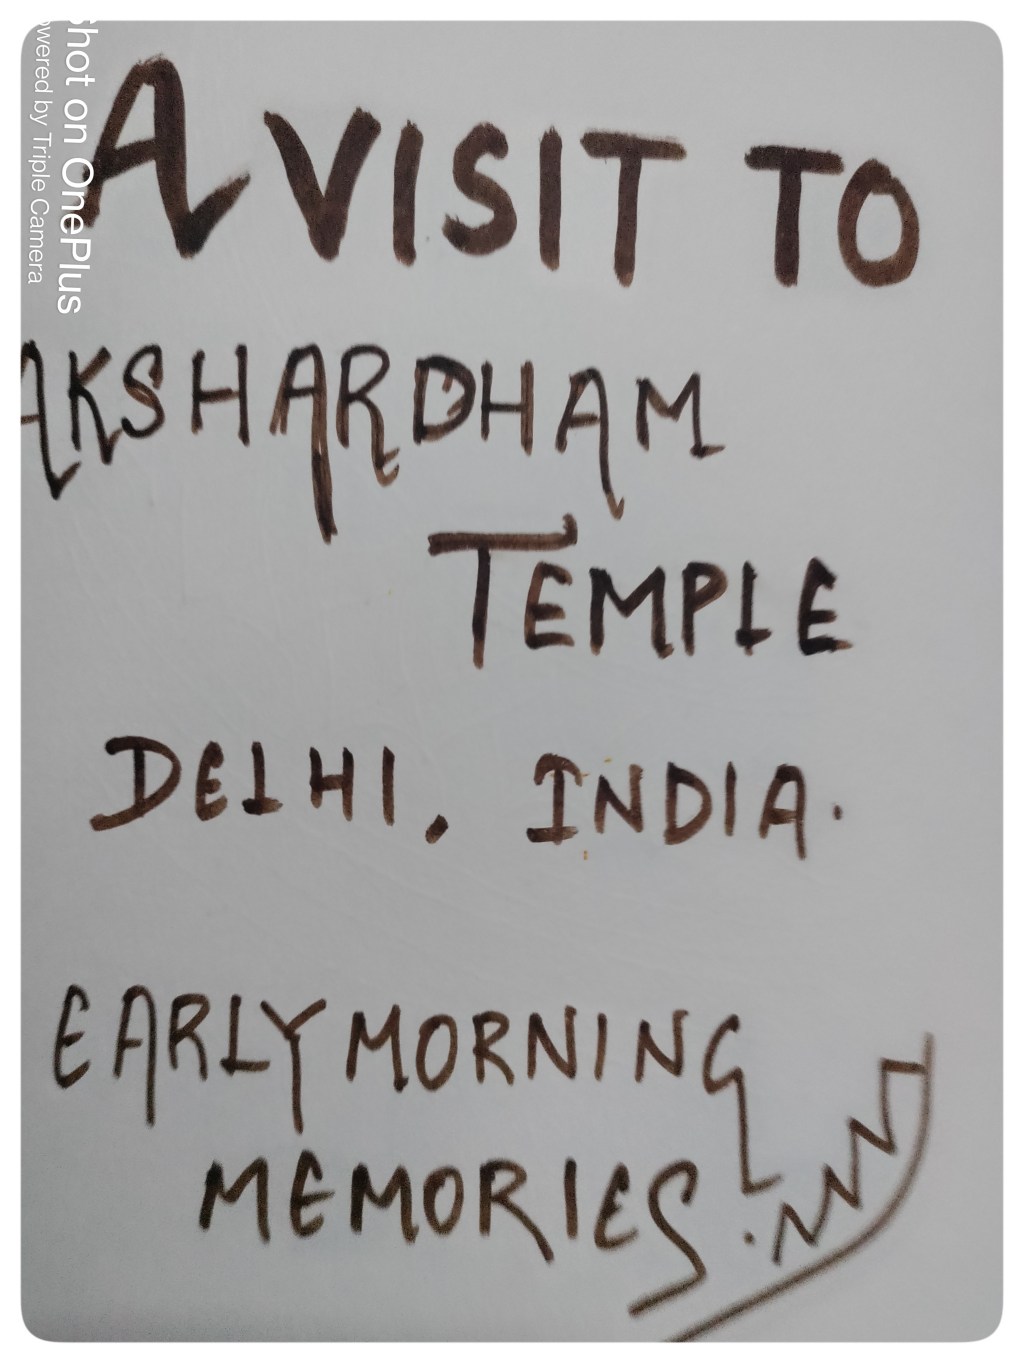 A VISIT TO
AKSHARDHAM
TEMPLE
DELHI, INDIA.
EARLY MORNING
MEMORIES.
Shot on OnePlus
Powered by Triple Camera